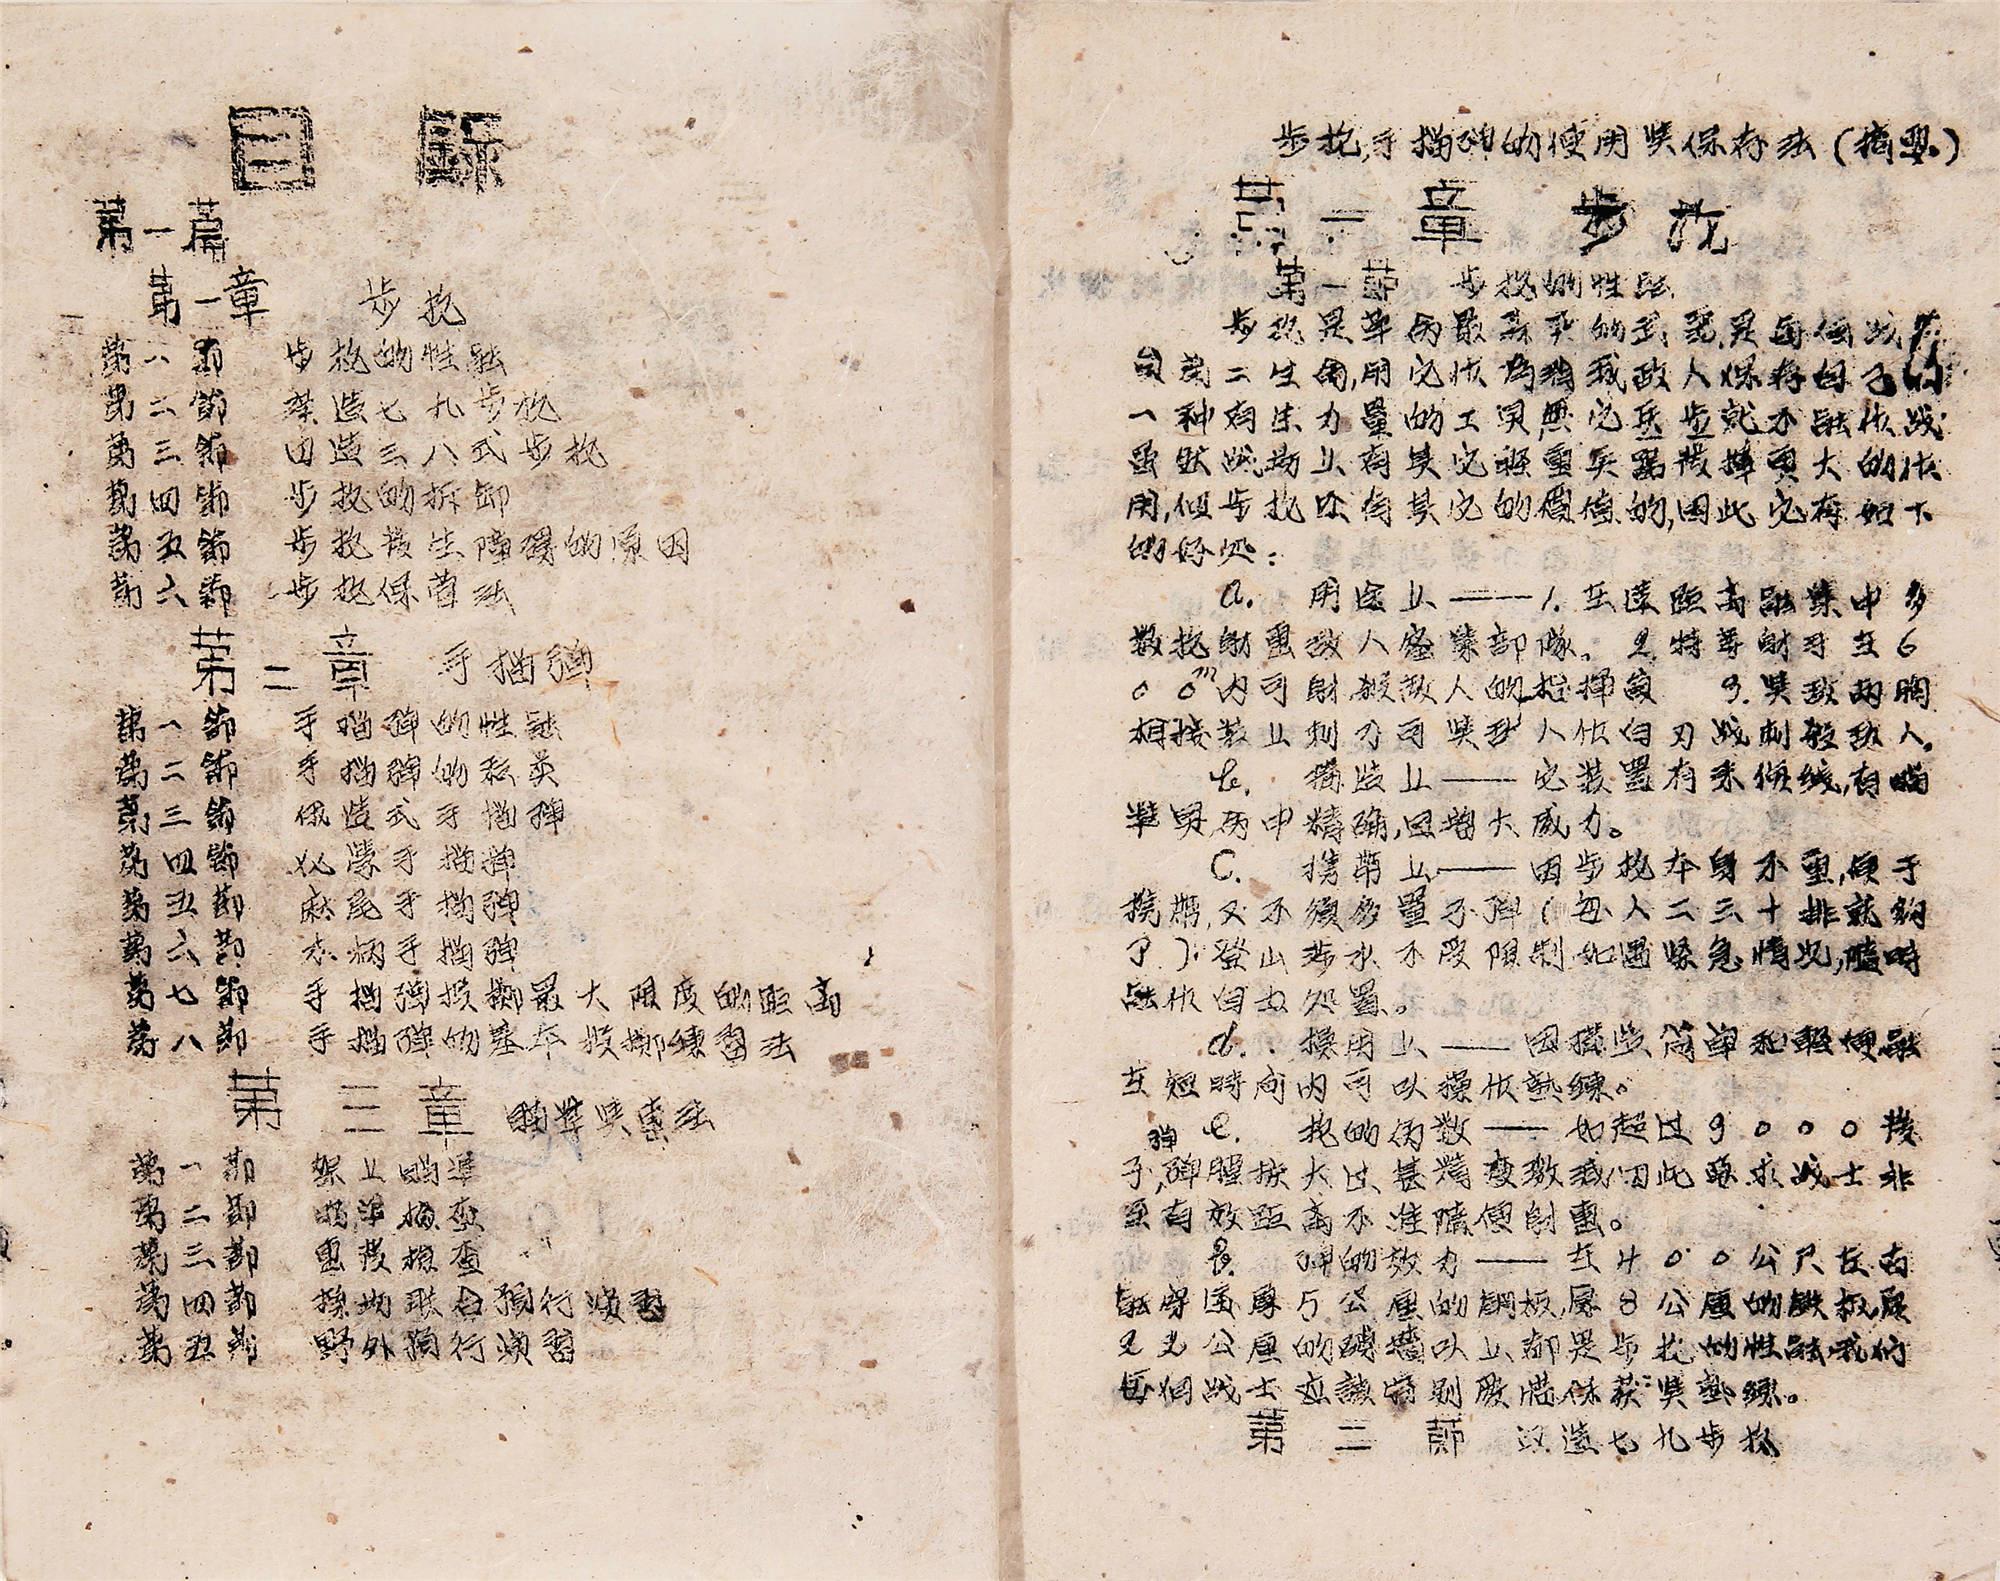 目録
第一篇
第一章 步枪
第一節 步枪的性能
第二節 漢造七九步枪
第三節 日造三八式步枪
第四節 步枪的拆卸
第五節 步枪發生障碍的原因
第六節 步枪保管法
第二章 手榴弹
第一節 手榴弹的性能
第二節 手榴弹的种类
第三節 俄造式手榴弹
第四節 手榴弹
第五節 麻尾手榴弹
第六節 木柄手榴弹
第七節 手榴弹投擲最大限度的距离
第八節 手榴弹的基本投擲練習法
第三章 瞄準與击法
第一節 架上瞄準
第二節 瞄準檢查
第三節 击發檢查
第四節 操場联合預行演習
第五節 野外預行演習
步枪,手榴弹的使用與保存法(摘要)
第一章 步枪
第一節 步枪的性能
步枪是革命最的武器,是每個战
第二生命,用它作為殲滅敌人保存自己的
一种有生力量的工具,無它兵步就不能作战
虽然战场上有其它轻重兵器發揮更大的作
用,但步枪亦有其它的價值的,因此它有如下
的好处:
a. 用途上——1.在遠距离能集中多
数枪射击敌人密集部隊。2.特等射手在6
00m内可射殺敌人的指揮員 3.與敌两胸
相接装上刺刀可與敌人作白刃战刺殺敌人。
b. 構造上——它装置有来復线,有瞄
準具,命中精确,因增大威力。
C. 携带上——因步枪本身不重,便于
携帶,又不須多量子弹(每人二三十排就夠
了).登山涉水不受限制如遇緊急情况,隨時
能作自由处置。
d. 操用上——因構造简单和輕便能
在短時间内可以操作熟練。
e. 枪的命数——如超过9000發
子弹,弹膛挨大过甚精度激減因此要求战士非
至有效距离不准隨便射击。
f. 弹的效力——在400公尺左右
能穿透厚5公厘的鋼板,厚8公厘的鉄板,厚
22公厘的磚墻以上都是步枪的性能,我们
每個战士应該特别保获與熟練。
第二節 汉造七九步枪